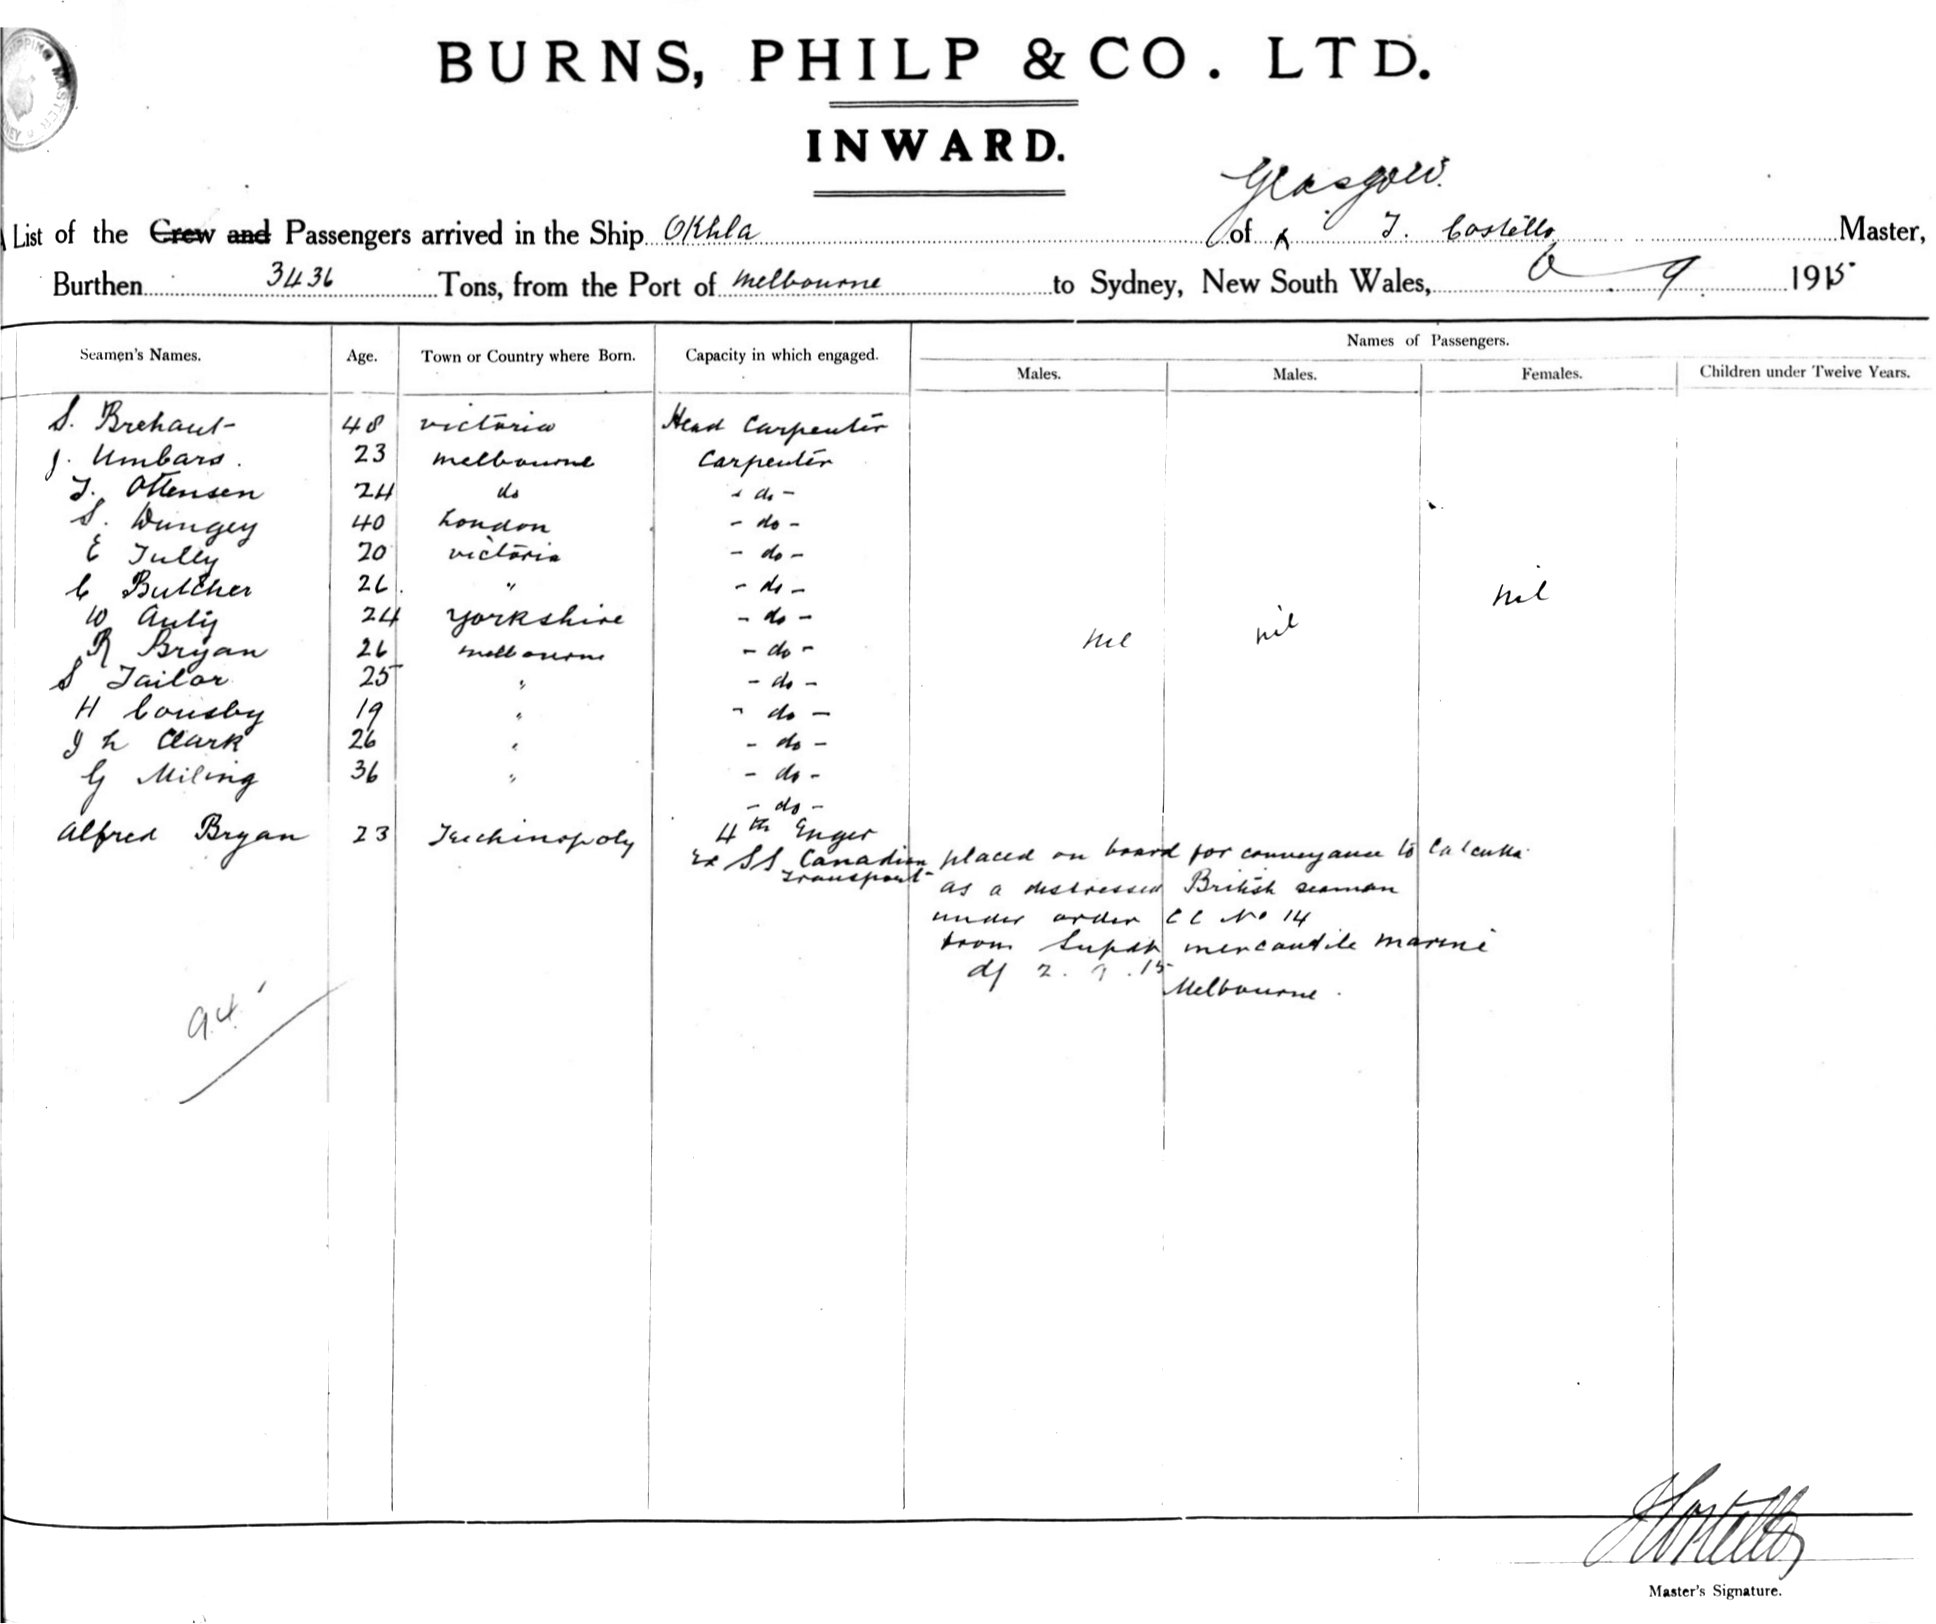 BURNS, PHILP & CO. LTD.
INWARD.
Glasgow.
List of the Crew and Passengers arrived in the Ship Okhla of T. Costello Master,
Burthen 3436 Tons, from the Port of Melbourne to Sydney, New South Wales, 6 9 1915
Seamen's Names. Age. Town or Country where Born. Capacity in which engaged. Names of Passengers.
Males. Males. Females. Children under Twelve Years.
S. Brehaut 48 Victoria Head Carpenter
J. Umbars. 23 Melbourne Carpenter
T. Ottensen 24 do - do -
S. Dungey 40 London - do -
E Tully 20 Victoria - do -
C Butcher 26 " - do -
W Auty 24 Yorkshire - do -
R Bryan 26 Melbourne - do -
S Tailor 25 " - do -
H Cousby 19 " - do -
J L Clark 26 " - do -
G Miling 36 " - do -
- do -
nil nil nil
Alfred Bryan 23 Trichinopoly 4th Enger
Ex SS Canadian Transport placed on board for conveyance to Calcutta
as a distressed British seaman
under order CC No 14
from Supdt mercantile marine
of 2. 9. 15
Melbourne.
94
Costello
Master's Signature.